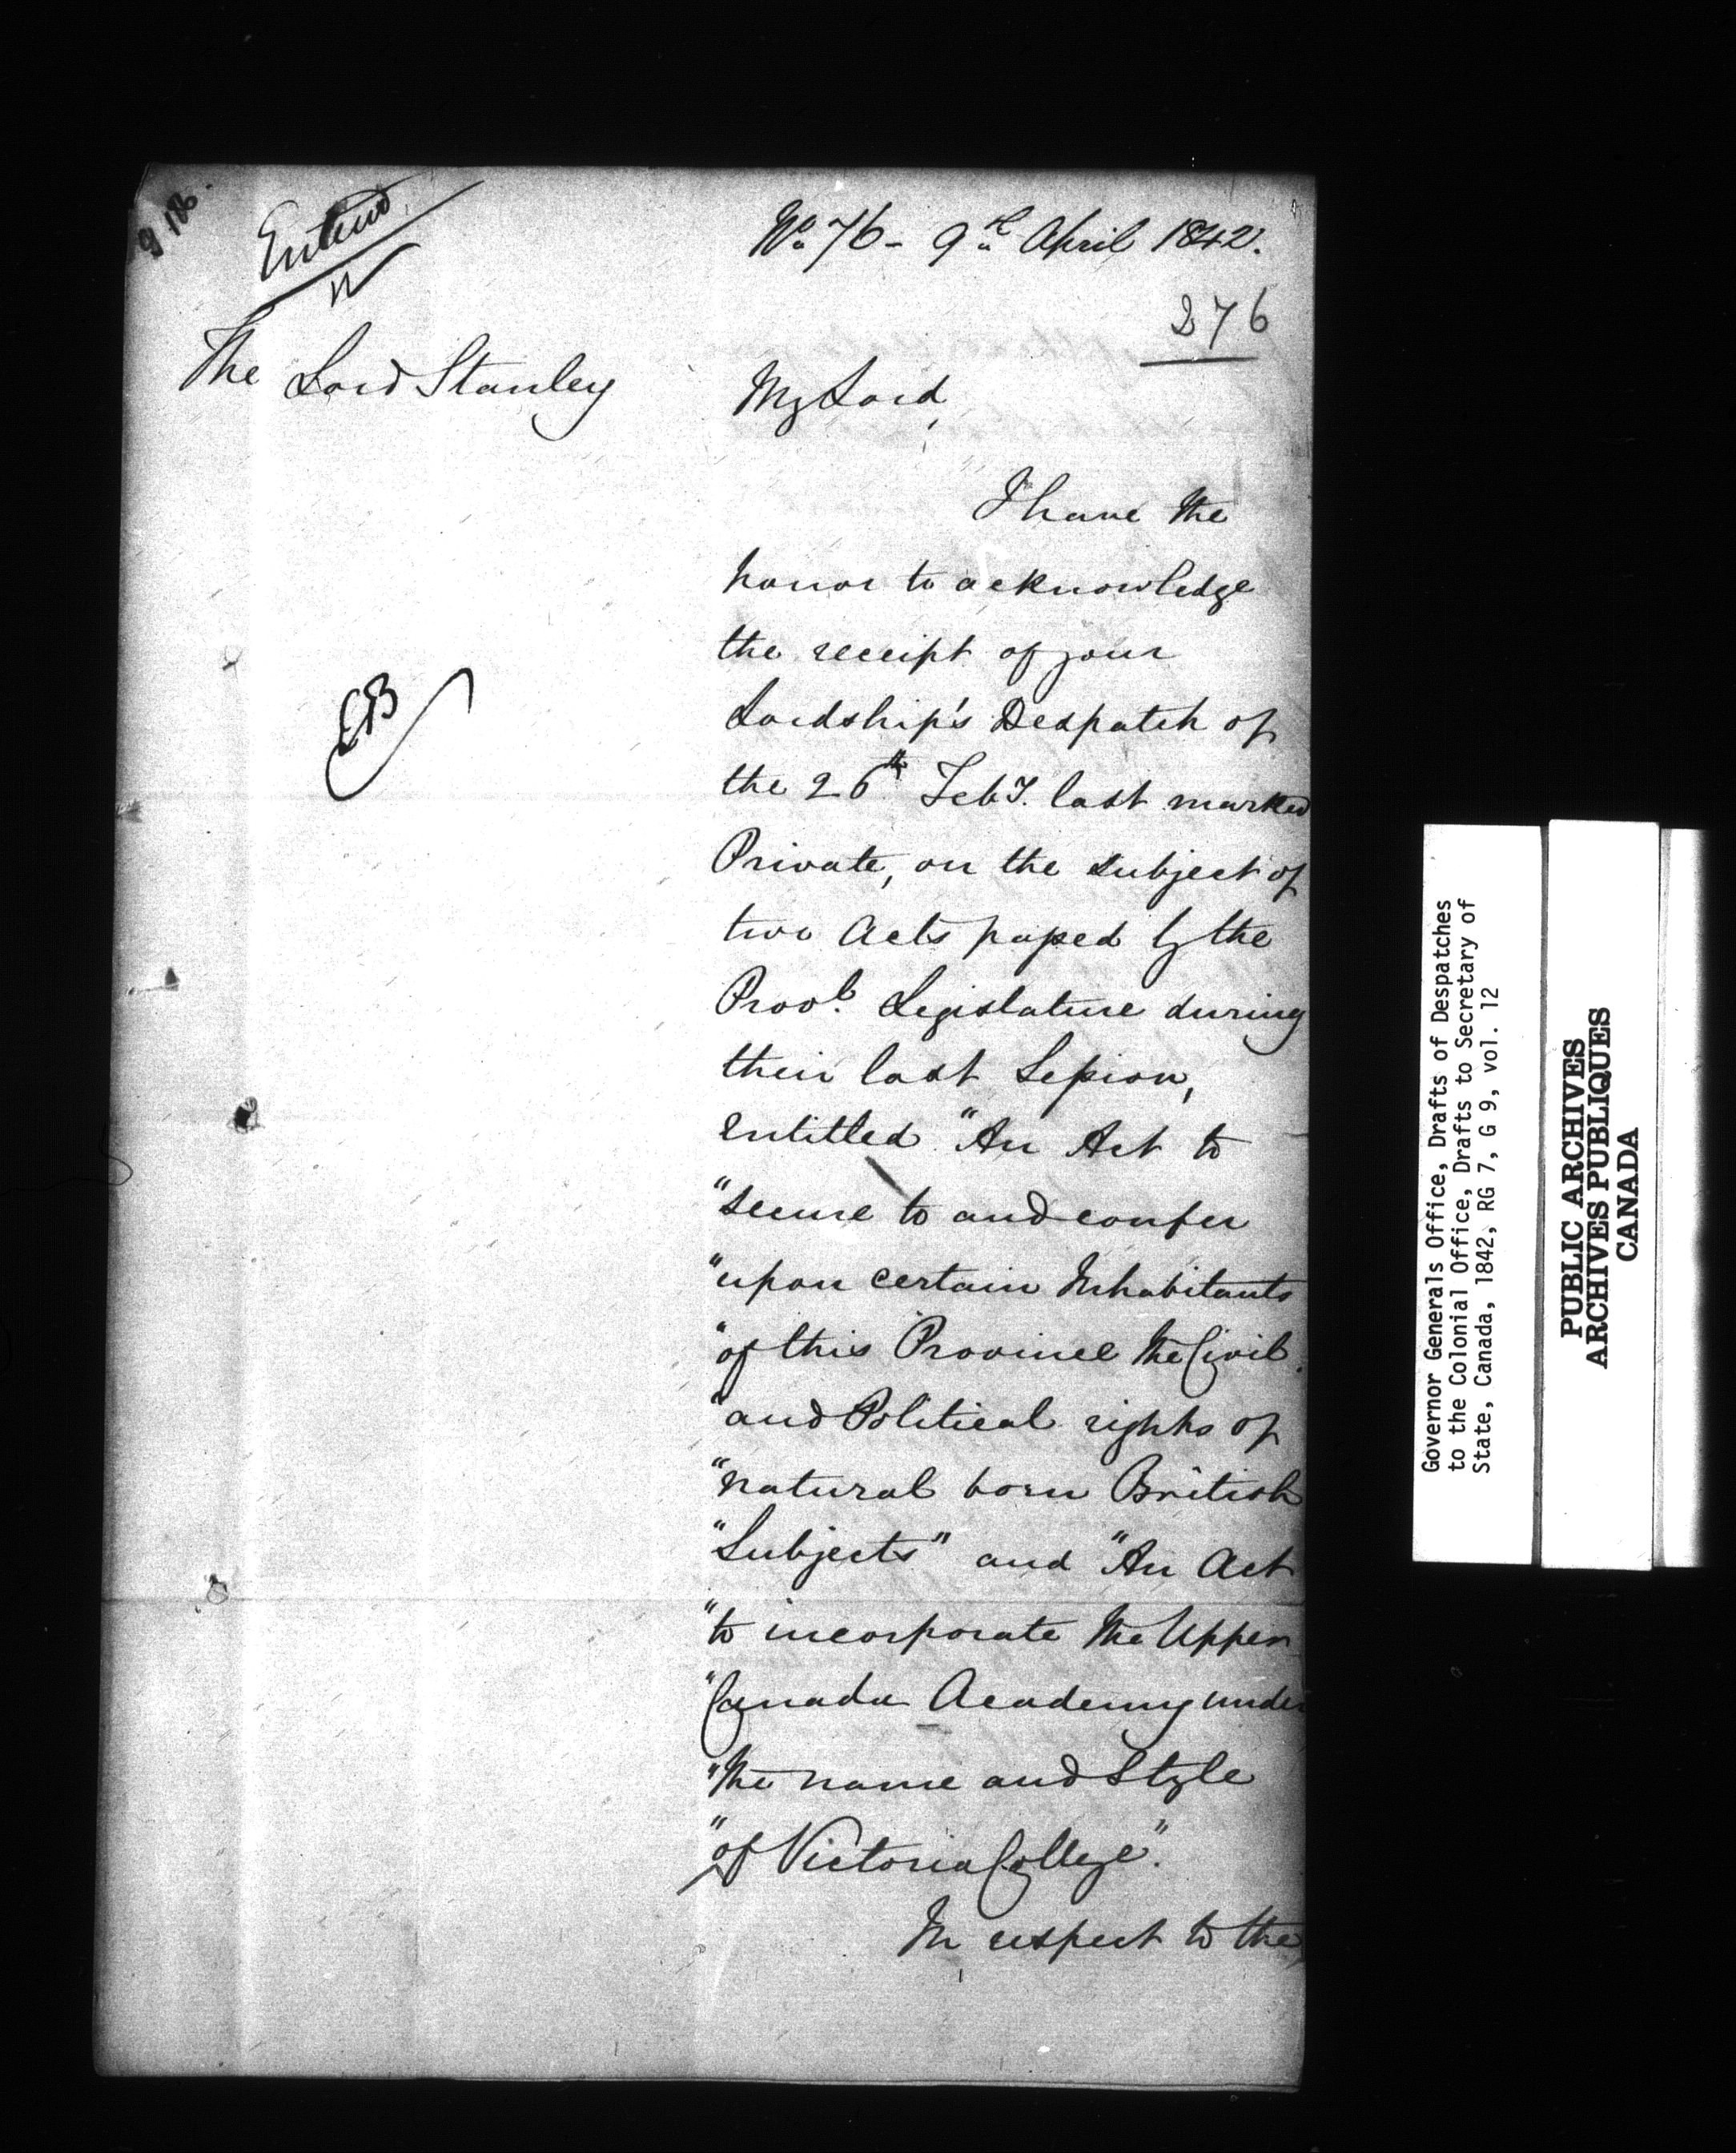 Entered
No. 76 - 9th April 1842.
276
The Lord Stanley
My Lord,
I have the
honor to acknowledge
the receipt of your
Lordship's Despatch of
the 26th Feby. last marked
Private, on the subject of
two Acts passed by the
Provl. Legislature during
their last Session,
entitled "An Act to
"secure to and confer
"upon certain Inhabitants
"of this Province the Civil
"and Political rights of
"natural born British
"Subjects" and "An Act
"to incorporate the Upper
"Canada Academy under
"the name and Style
"of Victoria College".
In respect to the
EB
Governor Generals Office, Drafts of Despatches
to the Colonial Office, Drafts to Secretary of
State, Canada, 1842, RG 7, G 9, vol. 12
PUBLIC ARCHIVES
ARCHIVES PUBLIQUES
CANADA